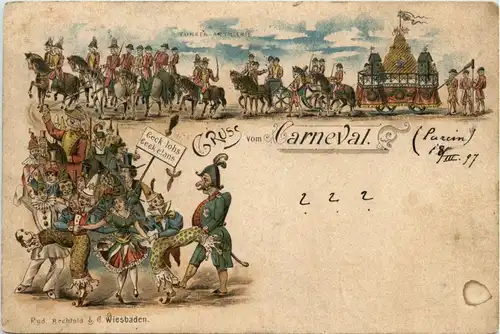 FUNKEN-ARTILLERIE
Geck Johs
Geck elans
Gruss vom Carneval.
18/III. 97
? ? ?
Rud. Bechtold & C. Wiesbaden.